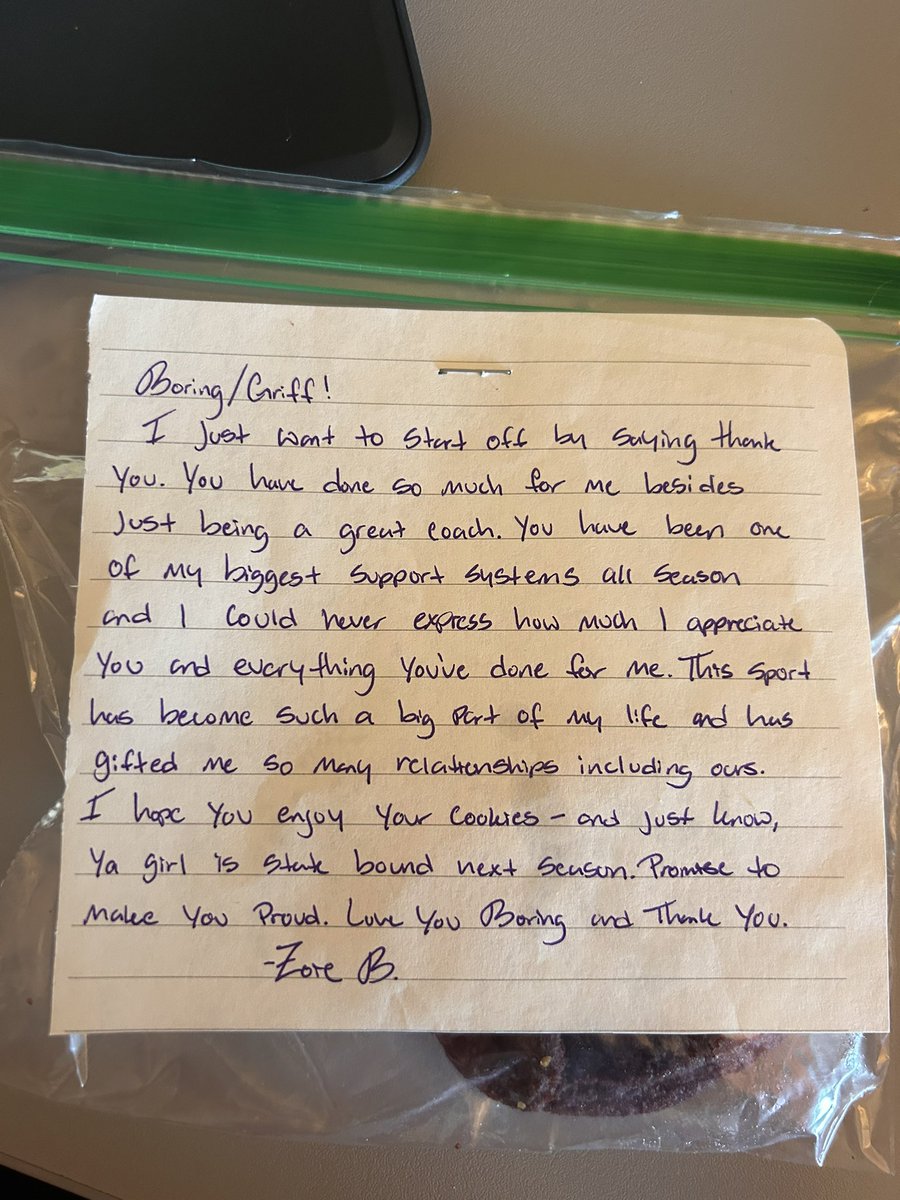 Boring/Griff!
I Just want to start off by saying thank
You. You have done so much for me besides
Just being a great coach. You have been one
of my biggest support systems all season
and I could never express how much I appreciate
You and everything You've done for me. This sport
has become such a big part of my life and has
gifted me so many relationships including ours.
I hope You enjoy Your Cookies - and just know,
Ya girl is state bound next season. Promise to
make You Proud. Love You Boring and Thank You.
-Zoie B.